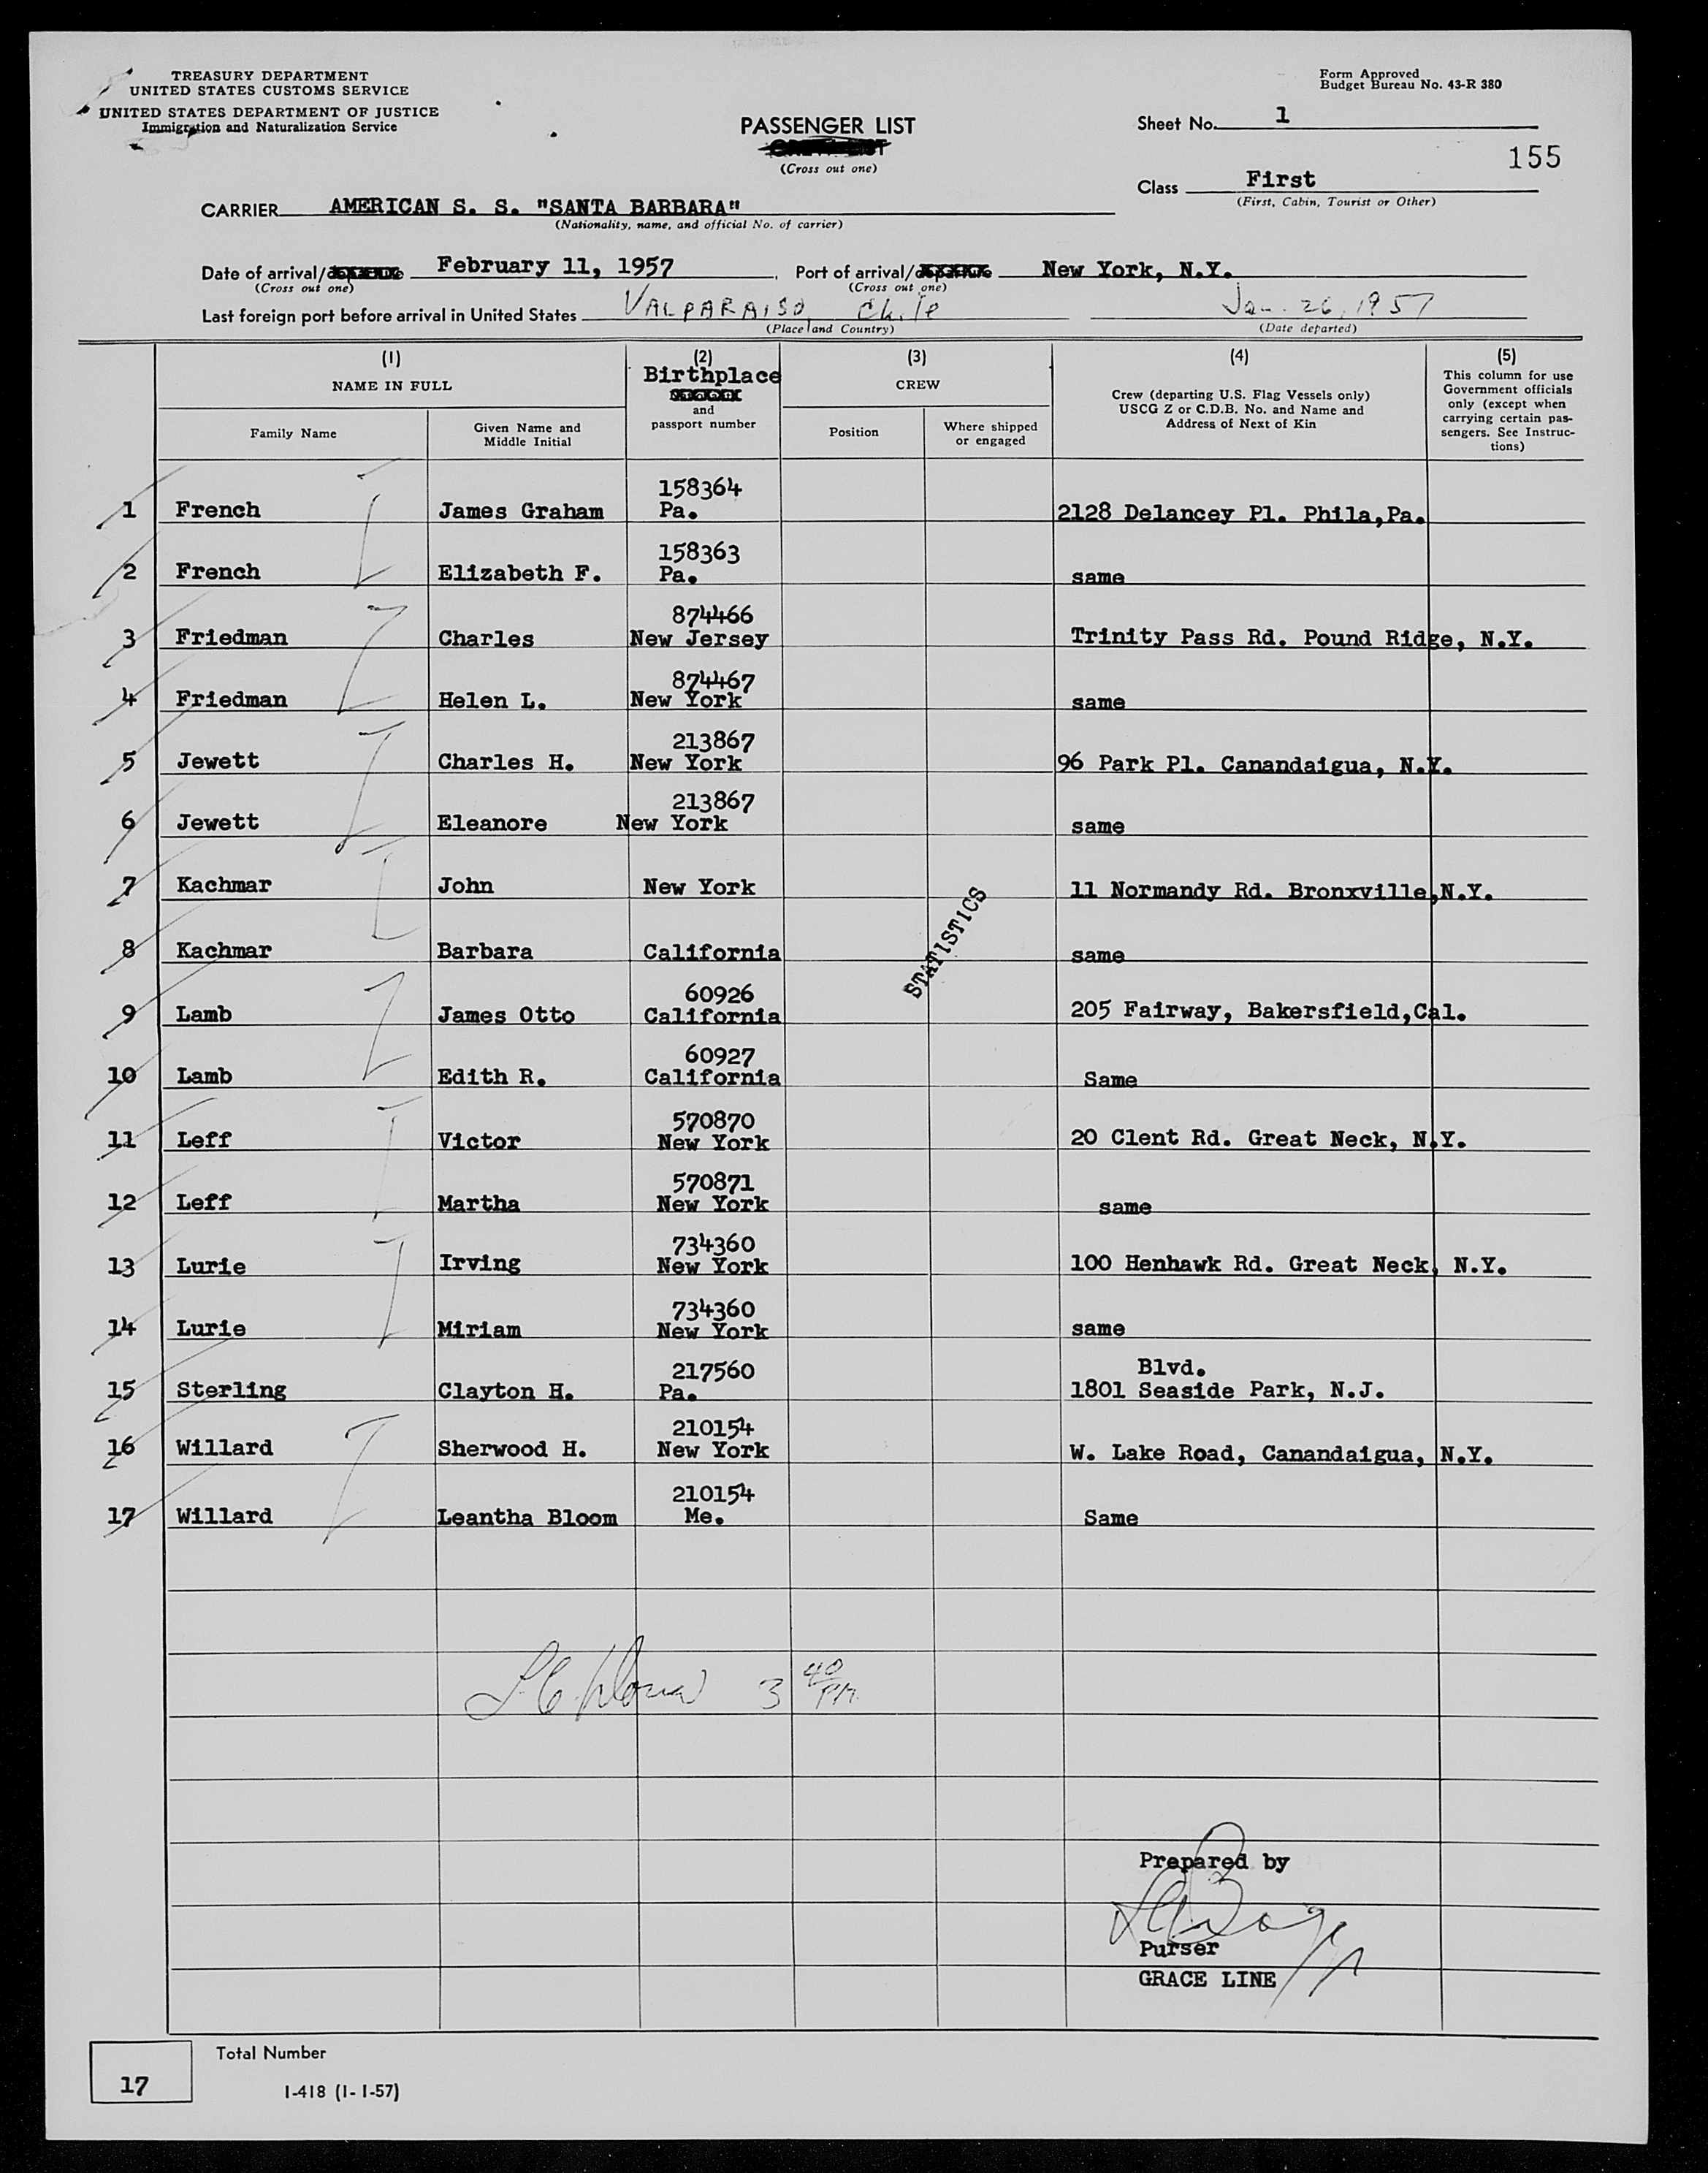 TREASURY DEPARTMENT
UNITED STATES CUSTOMS SERVICE
UNITED STATES DEPARTMENT OF JUSTICE
Immigration and Naturalization Service
Form Approved
Budget Bureau No. 43-R 380
PASSENGER LIST
(Cross out one)
Sheet No. 1
155
Class First
(First, Cabin, Tourist or Other)
CARRIER AMERICAN S. S. "SANTA BARBARA"
(Nationality, name, and official No. of carrier)
Date of arrival/ February 11, 1957 Port of arrival/ New York, N.Y.
(Cross out one) (Cross out one)
Last foreign port before arrival in United States VALPARAISO, Chile Jan. 26, 1957
(Place and Country) (Date departed)
(1) (2) (3) (4) (5)
NAME IN FULL
Family Name
Given Name and
Middle Initial
Birthplace
and
passport number
CREW
Position
Where shipped
or engaged
Crew (departing U.S. Flag Vessels only)
USCG Z or C.D.B. No. and Name and
Address of Next of Kin
This column for use
Government officials
only (except when
carrying certain pas-
sengers. See Instruc-
tions)
158364
1 French James Graham Pa. 2128 Delancey Pl. Phila,Pa.
158363
2 French Elizabeth F. Pa. same
874466
3 Friedman Charles New Jersey Trinity Pass Rd. Pound Ridge, N.Y.
874467
4 Friedman Helen L. New York same
213867
5 Jewett Charles H. New York 96 Park Pl. Canandaigua, N.Y.
213867
6 Jewett Eleanore New York same
7 Kachmar John New York 11 Normandy Rd. Bronxville,N.Y.
STATISTICS
8 Kachmar Barbara California same
60926
9 Lamb James Otto California 205 Fairway, Bakersfield,Cal.
60927
10 Lamb Edith R. California Same
570870
11 Leff Victor New York 20 Clent Rd. Great Neck, N.Y.
570871
12 Leff Martha New York same
734360
13 Lurie Irving New York 100 Henhawk Rd. Great Neck, N.Y.
734360
14 Lurie Miriam New York same
217560 Blvd.
15 Sterling Clayton H. Pa. 1801 Seaside Park, N.J.
210154
16 Willard Sherwood H. New York W. Lake Road, Canandaigua, N.Y.
210154
17 Willard Leantha Bloom Me. Same
3 40 PM
Prepared by
Purser
GRACE LINE
Total Number
17
I-418 (1-1-57)